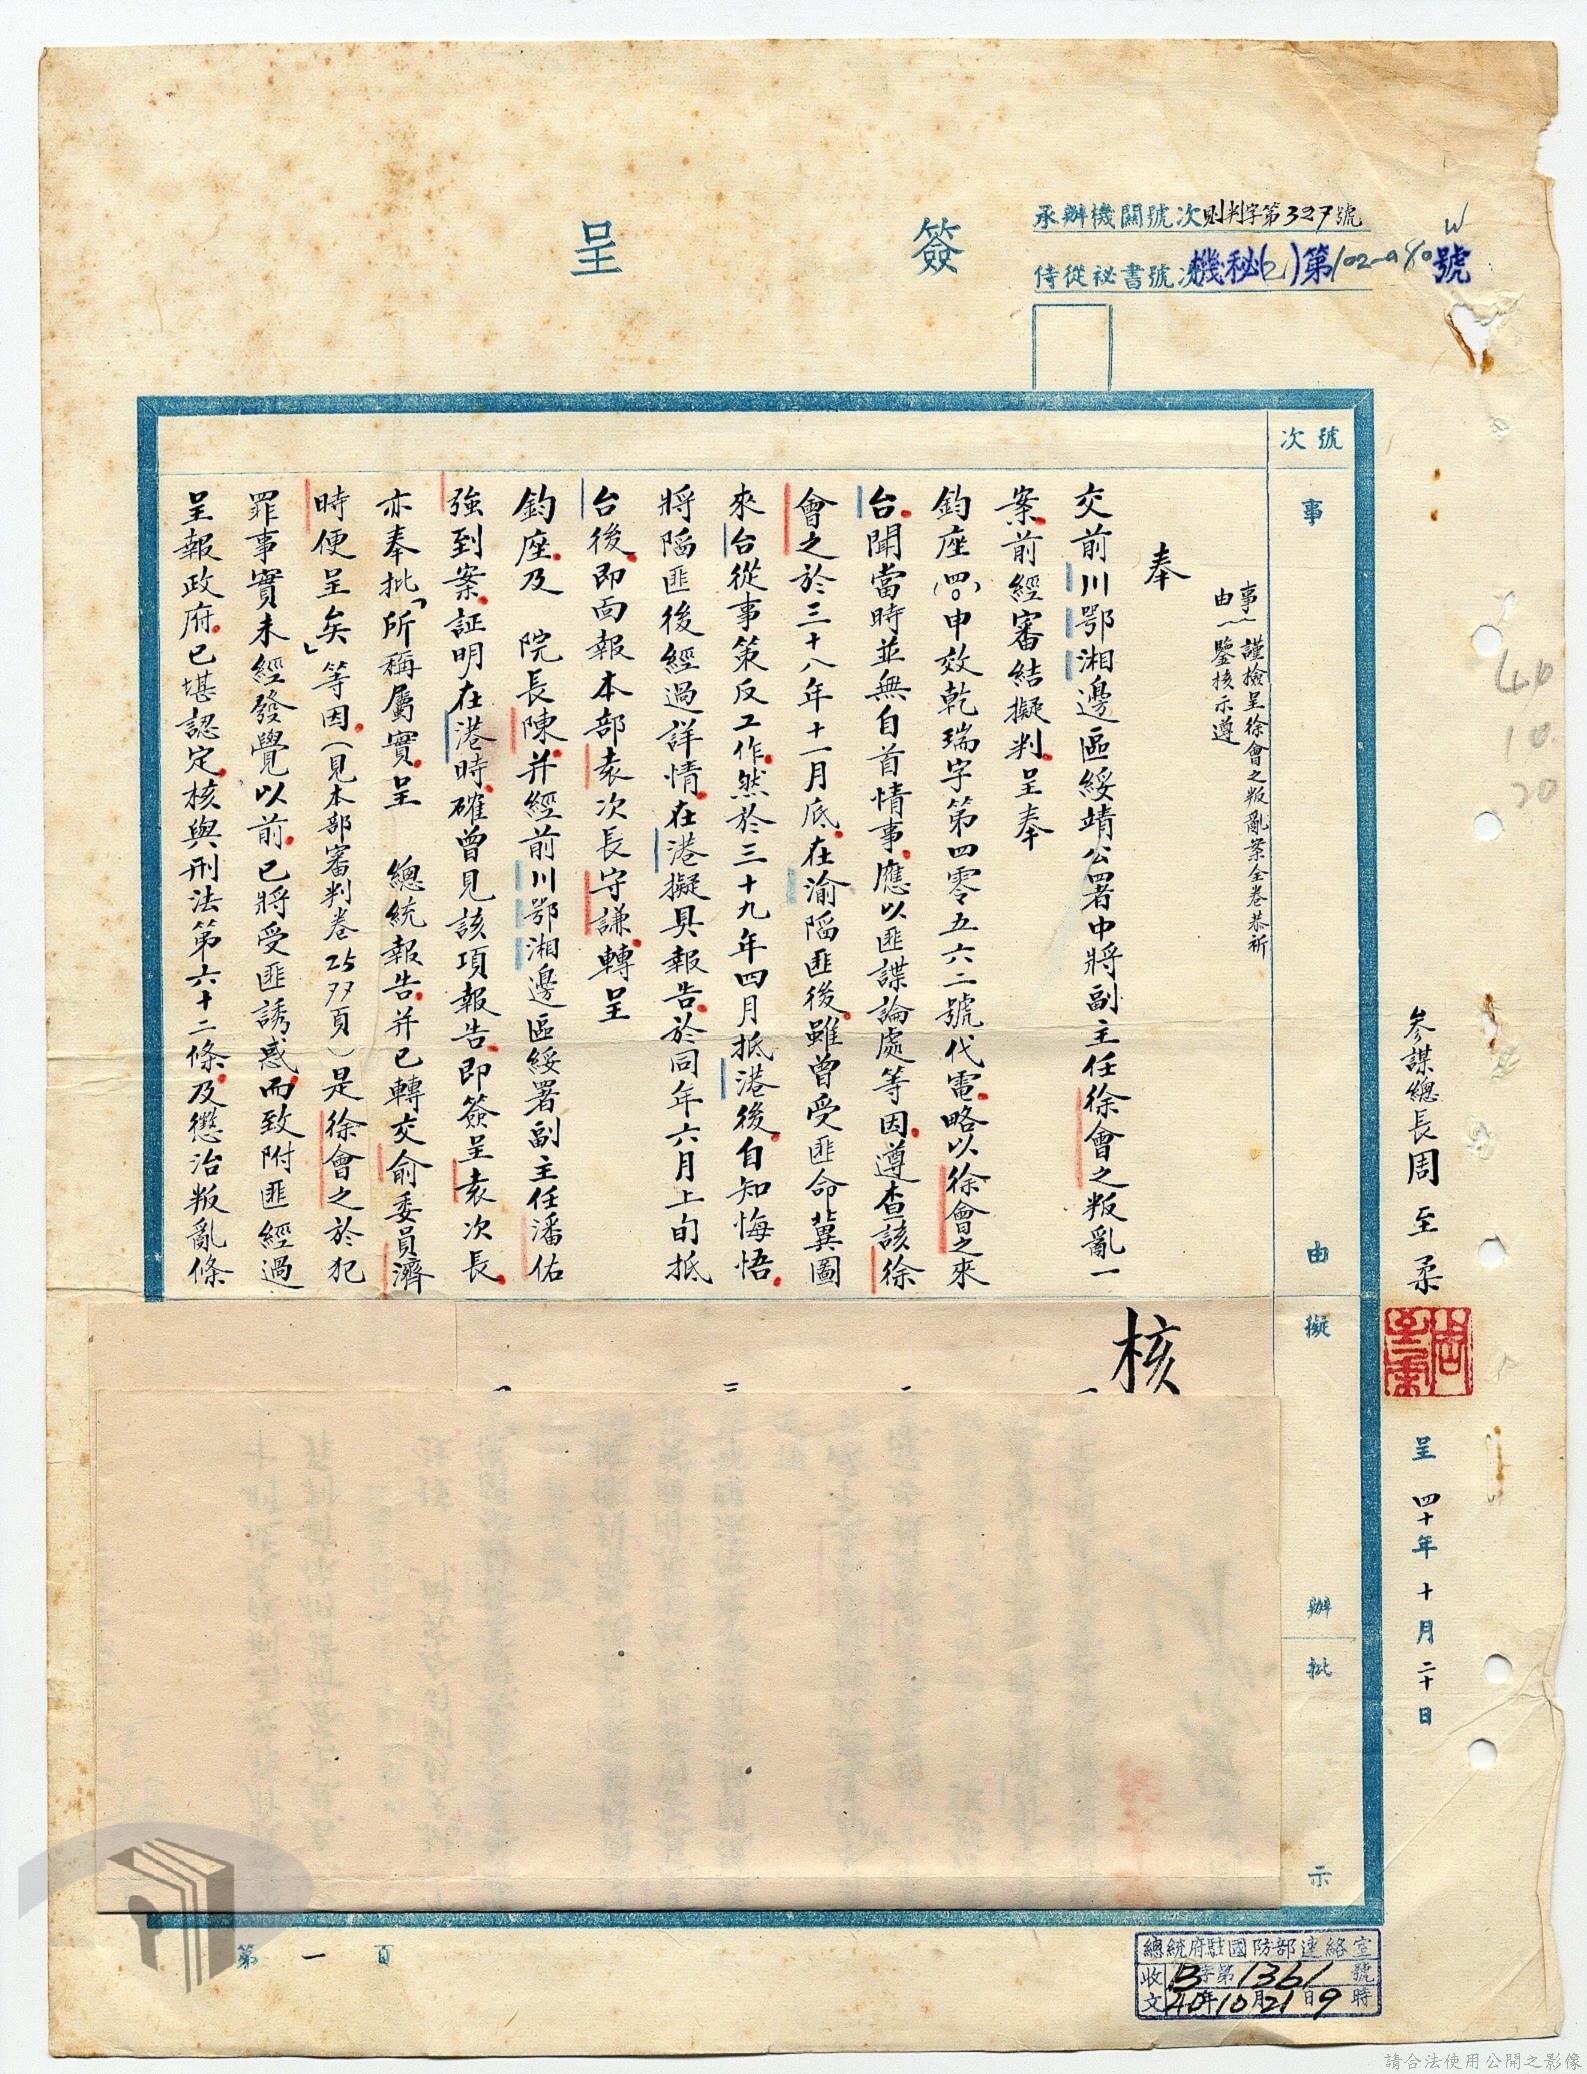 簽呈
承辦機關號次則判字第327號
侍從祕書號次機秘(乙)第102-0940號
號次
事由
擬辦
批示
參謀總長周至柔
呈 四十年十月二十日
事由：謹檢呈徐會之叛亂案全卷恭祈
鑒核示遵
奉
交前川鄂湘邊區綏靖公署中將副主任徐會之叛亂一
案前經審結擬判呈奉
鈞座(四○)申效乾瑞字第四零五六二號代電略以徐會之來
台聞當時並無自首情事應以匪諜論處等因遵查該徐
會之於三十八年十一月底在渝陷匪後雖曾受匪命冀圖
來台從事策反工作然於三十九年四月抵港後自知悔悟
將陷匪後經過詳情在港擬具報告於同年六月上旬抵
台後即面報本部袁次長守謙轉呈
鈞座及 院長陳并經前川鄂湘邊區綏署副主任潘佑
強到案証明在港時確曾見該項報告即簽呈袁次長
亦奉批「所稱屬實呈 總統報告并已轉交俞委員濟
時便呈矣」等因(見本部審判卷2577頁)是徐會之於犯
罪事實未經發覺以前已將受匪誘惑而致附匪經過
呈報政府已堪認定核與刑法第六十二條及懲治叛亂條
核
第一頁
總統府駐國防部連絡室
收文 B字第1361號
40年10月21日9時
請合法使用公開之影像